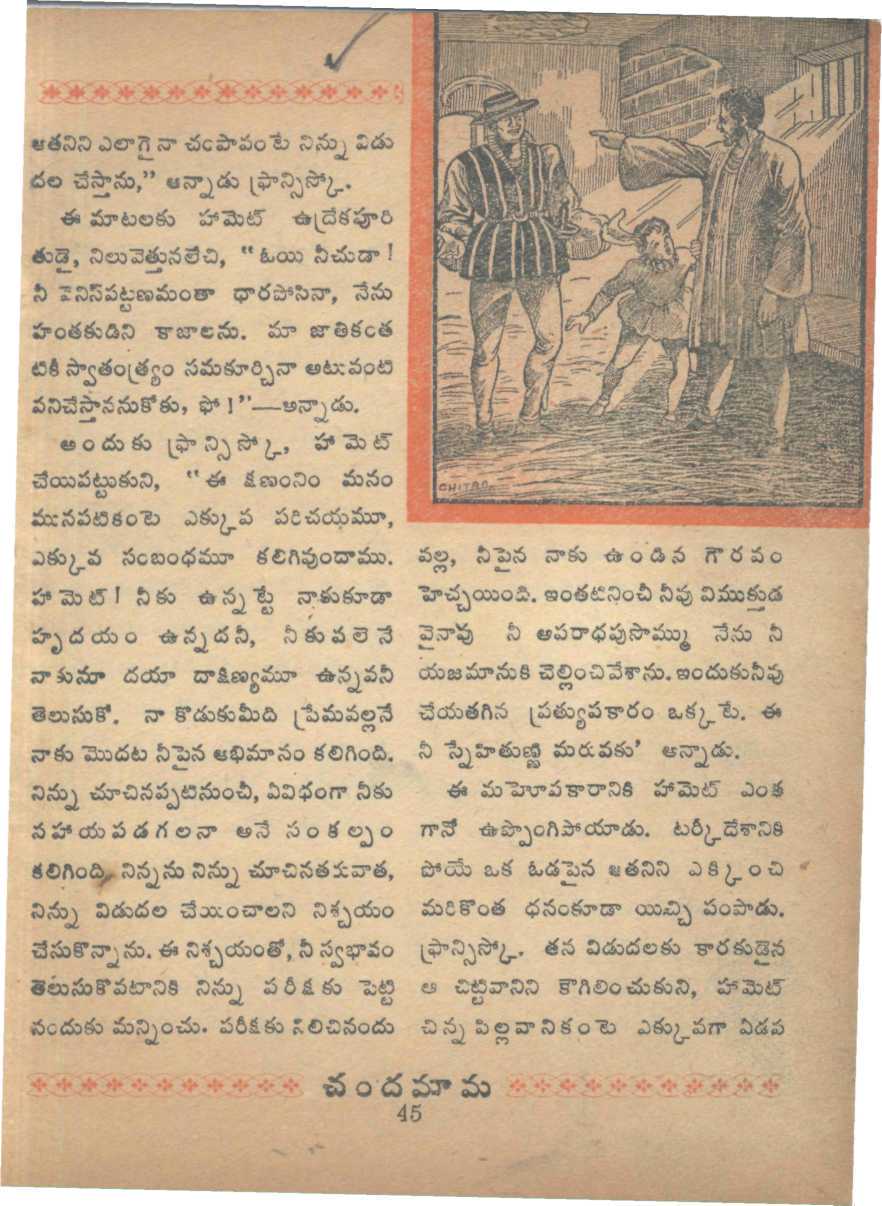 ఆతనిని ఎలాగైనా చంపావంటే నిన్ను విడు
దల చేస్తాను,” అన్నాడు ఫ్రాన్సిస్కో.
ఈ మాటలకు హామెట్ ఉద్రేకపూరి
తుడై, నిలువెత్తునలేచి, “ఓయి నీచుడా!
నీ వెనిస్‌పట్టణమంతా ధారపోసినా, నేను
హంతకుడిని కాజాలను. మా జాతికంత
టికీ స్వాతంత్ర్యం సమకూర్చినా అటువంటి
పనిచేస్తాననుకోకు, ఫో!”—అన్నాడు.
అందుకు ఫ్రాన్సిస్కో, హామెట్
చేయిపట్టుకుని, “ఈ క్షణంనిం మనం
మునపటికంటె ఎక్కువ పరిచయమూ,
ఎక్కువ సంబంధమూ కలిగివుందాము.
హామెట్! నీకు ఉన్నట్టే నాకుకూడా
హృదయం ఉన్నదనీ, నీకువలెనే
నాకునూ దయా దాక్షిణ్యమూ ఉన్నవనీ
తెలుసుకో. నా కొడుకుమీది ప్రేమవల్లనే
నాకు మొదట నీపైన అభిమానం కలిగింది.
నిన్ను చూచినప్పటినుంచీ, ఏవిధంగా నీకు
సహాయపడగలనా అనే సంకల్పం
కలిగింది. నిన్నను నిన్ను చూచినతరువాత,
నిన్ను విడుదల చేయించాలని నిశ్చయం
చేసుకొన్నాను. ఈ నిశ్చయంతో, నీ స్వభావం
తెలుసుకొవటానికి నిన్ను పరీక్షకు పెట్టి
నందుకు మన్నించు. పరీక్షకు నిలిచినందు
CHITRA
వల్ల, నీపైన నాకు ఉండిన గౌరవం
హెచ్చయింది. ఇంతటినించీ నీవు విముక్తుడ
వైనావు నీ అపరాధపుసొమ్ము నేను నీ
యజమానుకి చెల్లించివేశాను. ఇందుకునీవు
చేయతగిన ప్రత్యుపకారం ఒక్కటే. ఈ
నీ స్నేహితుణ్ణి మరువకు’ అన్నాడు.
ఈ మహెూపకారానికి హామెట్ ఎంత
గానో ఉప్పొంగిపోయాడు. టర్కీదేశానికి
పోయే ఒక ఓడపైన ఆతనిని ఎక్కించి
మరికొంత ధనంకూడా యిచ్చి పంపాడు.
ఫ్రాన్సిస్కో. తన విడుదలకు కారకుడైన
ఆ చిట్టివానిని కౌగిలించుకుని, హామెట్
చిన్నపిల్లవానికంటె ఎక్కువగా ఏడవ
చందమామ
45